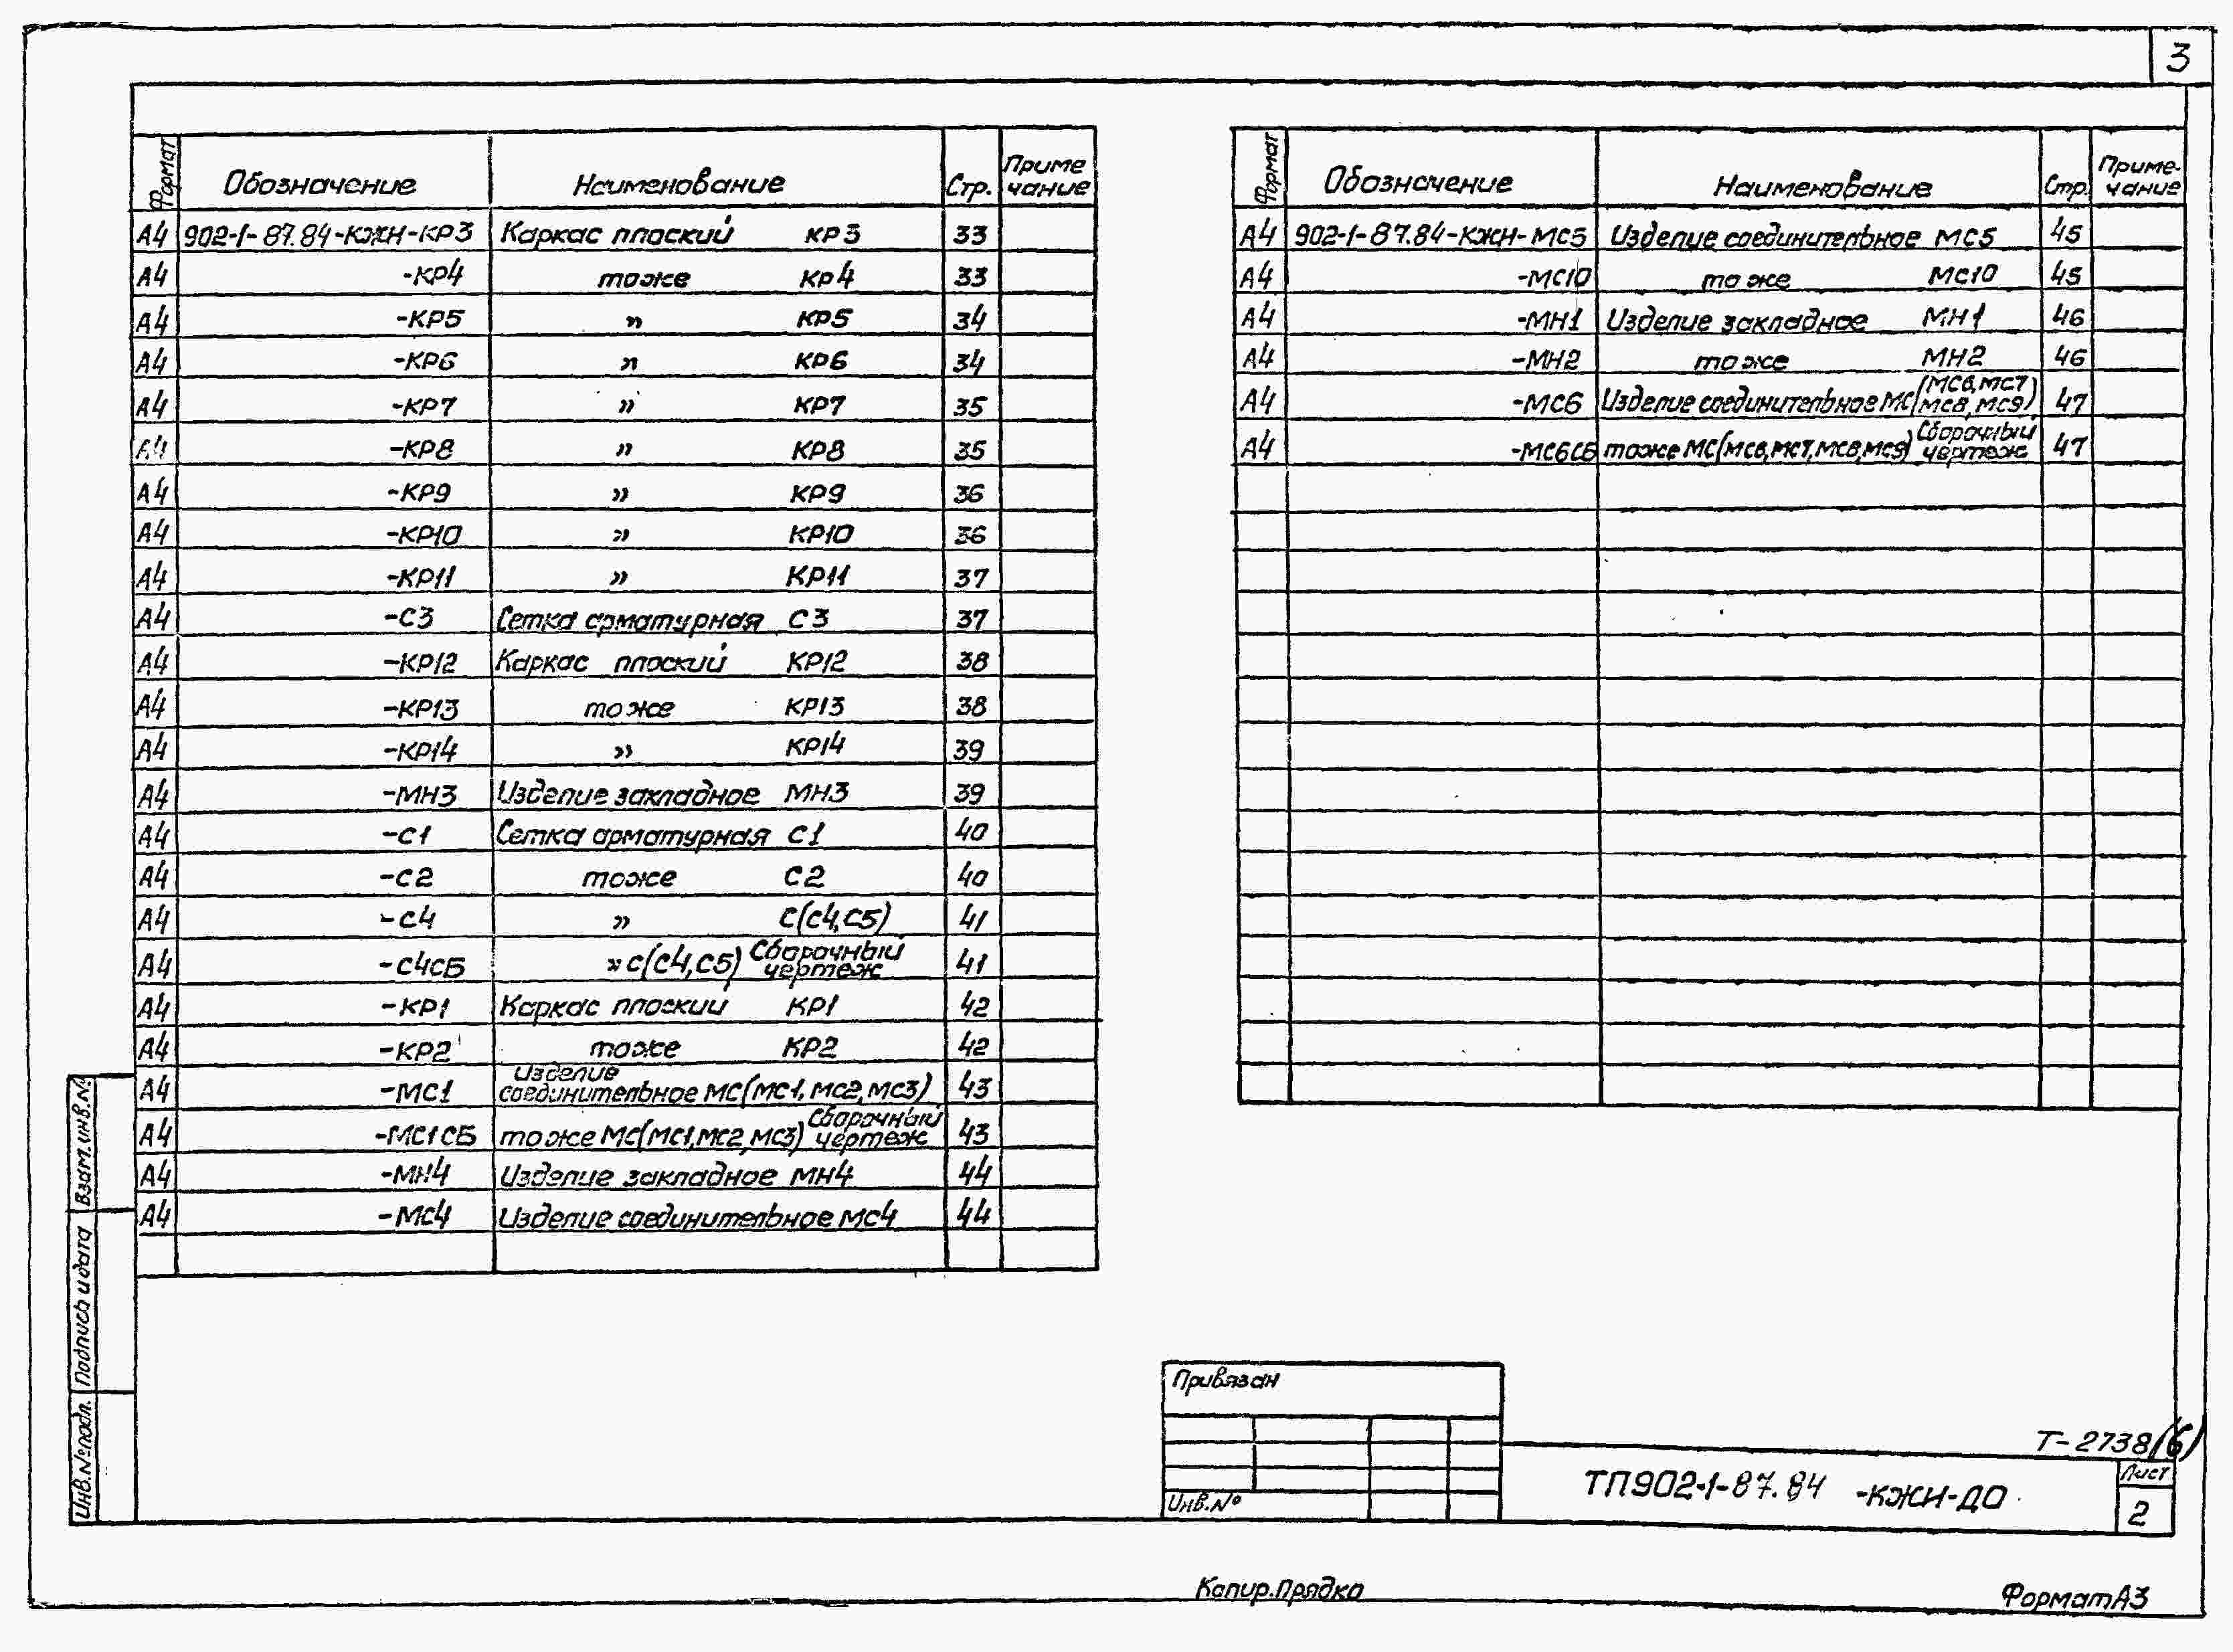 3
Формат Обозначение Наименование Стр. Приме чание
А4 902-1-87.84-КЖН-КР3 Каркас плоский КР3 33
А4 -КР4 тоже КР4 33
А4 -КР5 " КР5 34
А4 -КР6 " КР6 34
А4 -КР7 " КР7 35
А4 -КР8 " КР8 35
А4 -КР9 " КР9 36
А4 -КР10 " КР10 36
А4 -КР11 " КР11 37
А4 -С3 Сетка арматурная С3 37
А4 -КР12 Каркас плоский КР12 38
А4 -КР13 тоже КР13 38
А4 -КР14 " КР14 39
А4 -МН3 Изделие закладное МН3 39
А4 -С1 Сетка арматурная С1 40
А4 -С2 тоже С2 40
А4 -С4 " С(С4,С5) 41
А4 -С4СБ " С(С4,С5) Сборочный чертеж 41
А4 -КР1 Каркас плоский КР1 42
А4 -КР2 тоже КР2 42
А4 -МС1 Изделие соединительное МС(МС1, МС2, МС3) 43
А4 -МС1СБ тоже МС(МС1,МС2,МС3) Сборочный чертеж 43
А4 -МН4 Изделие закладное МН4 44
А4 -МС4 Изделие соединительное МС4 44
Формат Обозначение Наименование Стр. Приме- чание
А4 902-1-87.84-КЖН-МС5 Изделие соединительное МС5 45
А4 -МС10 тоже МС10 45
А4 -МН1 Изделие закладное МН1 46
А4 -МН2 тоже МН2 46
А4 -МС6 Изделие соединительное МС(МС6, МС7, МС8, МС9) 47
А4 -МС6СБ тоже МС(МС6,МС7,МС8,МС9) Сборочный чертеж 47
Взам.инв.№
Подпись и дата
Инв.№подл.
Привязан
Инв.№
Т-2738 (6)
ТП902-1-87.84 -КЖИ-ДО
Лист
2
Копир.Прядко
Формат А3